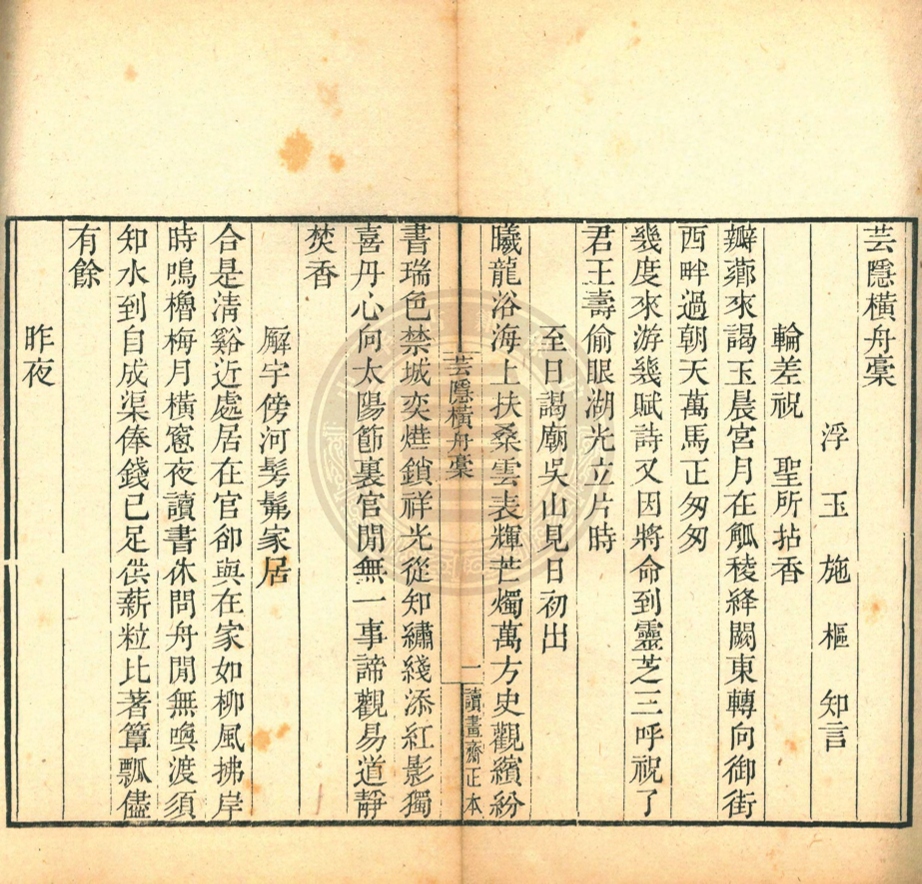 芸隱橫舟藁
浮玉施樞知言
輪差祝　聖所拈香
瓣薌來謁玉晨宮月在觚稜絳闕東轉向御街
西畔過朝天萬馬正匆匆
幾度來游幾賦詩又因將命到靈芝三呼祝了
君王壽偷眼湖光立片時
至日謁廟吳山見日初出
曦龍浴海上扶桑雲表輝芒燭萬方史觀繽紛
芸隱橫舟藁
一
讀畫齋正本
書瑞色禁城奕燁鎖祥光從知繡綫添紅影獨
喜丹心向太陽節裏官閒無一事諦觀易道靜
焚香
廨宇傍河髣髴家居
合是清谿近處居在官卻與在家如柳風拂岸
時鳴櫓梅月橫窻夜讀書休問舟閒無喚渡須
知水到自成渠俸錢已足供薪粒比著簞瓢儘
有餘
昨夜